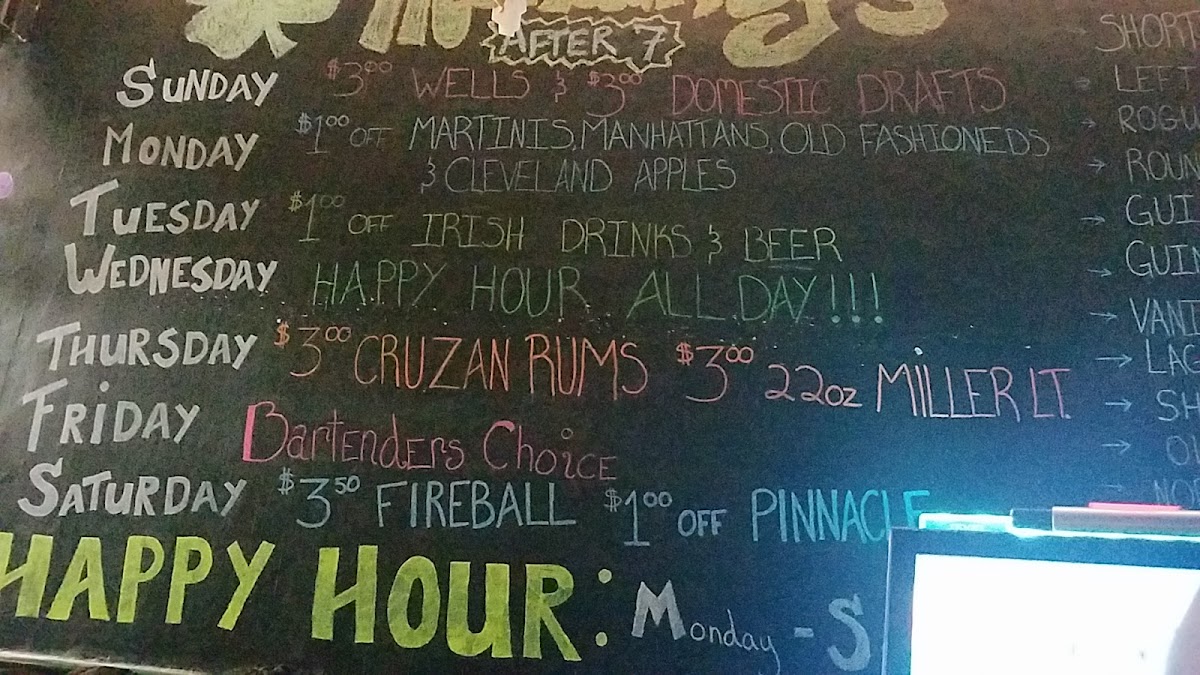 AFTER 7
SUNDAY $3.00 WELLS & $3.00 DOMESTIC DRAFTS
MONDAY $1.00 OFF MARTINIS, MANHATTANS, OLD FASHIONEDS
& CLEVELAND APPLES
TUESDAY $1.00 OFF IRISH DRINKS & BEER
WEDNESDAY HAPPY HOUR ALL DAY!!!
THURSDAY $3.00 CRUZAN RUMS $3.00 22oz MILLER LT.
FRIDAY Bartenders Choice
SATURDAY $3.50 FIREBALL $1.00 OFF PINNACLE
HAPPY HOUR: Monday - S
SHORT
LEFT
ROGU
→ ROUN
→ GUI
→ GUIN
→ VANI
→ LAG
→ SH